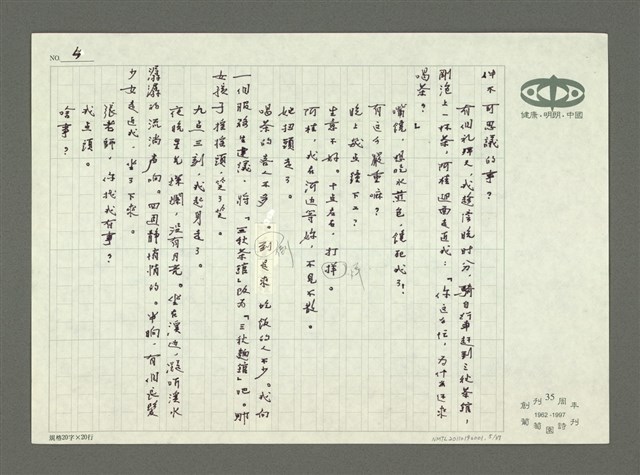 NO. 4
件不可思議的事？
有個禮拜天，我趁傍晚時分，騎自行車趕到三秋茶館，
剛泡上一杯茶，阿桂迎面走過我：「你這麼忙，為什麼還來
喝茶？」
嘴饞，想吃水煎包，饞死我了！
有這麼嚴重嘛？
晚上幾點鐘下工？
生意不好。十點左右，打烊。
阿桂，我在河邊等妳，不見不散。
她扭頭走了。
喝茶的客人不多。倒是來吃飯的人不少。我向
一個服務生建議，將「三秋茶館」改為「三秋麵館」吧。那
女孩子搖搖頭，笑了笑。
九點三刻，我起身走了。
夜晚星光燦爛，沒有月亮。坐在溪邊，凝聽溪水
潺潺的流淌聲响。四週靜悄悄的。半晌，有個長髮
少女走近我，坐了下來。
張老師，你找我有事？
我点頭。
啥事？
健康・明朗・中國
創刊35周年
1962-1997
葡萄園詩刊
規格20字×20行